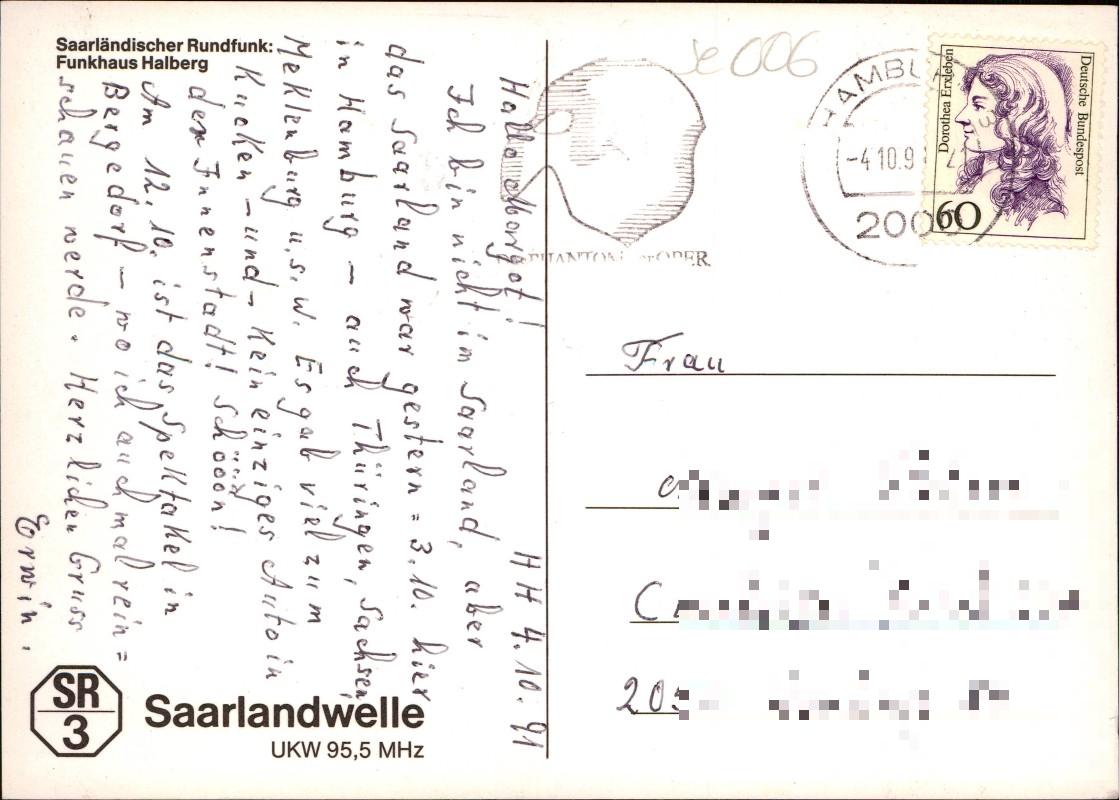 Saarländischer Rundfunk:
Funkhaus Halberg
HH 4.10.91
Hallo Margot!
Ich bin nicht im Saarland, aber
das Saarland war gestern = 3.10. hier
in Hamburg – auch Thüringen, Sachsen,
Meklenburg u.s.w. Es gab viel zum
Kucken – und – kein einziges Auto in
der Innenstadt! Schööön!
Am 12.10. ist das Spektakel in
Bergedorf – wo ich auch mal rein=
schauen werde. Herzlichen Gruss
Erwin.
SR
3
Saarlandwelle
UKW 95,5 MHz
se 006
PHANTOM der OPER
HAMBU
-4.10.9
200
Dorothea Erxleben
Deutsche Bundespost
60
Frau
C
205